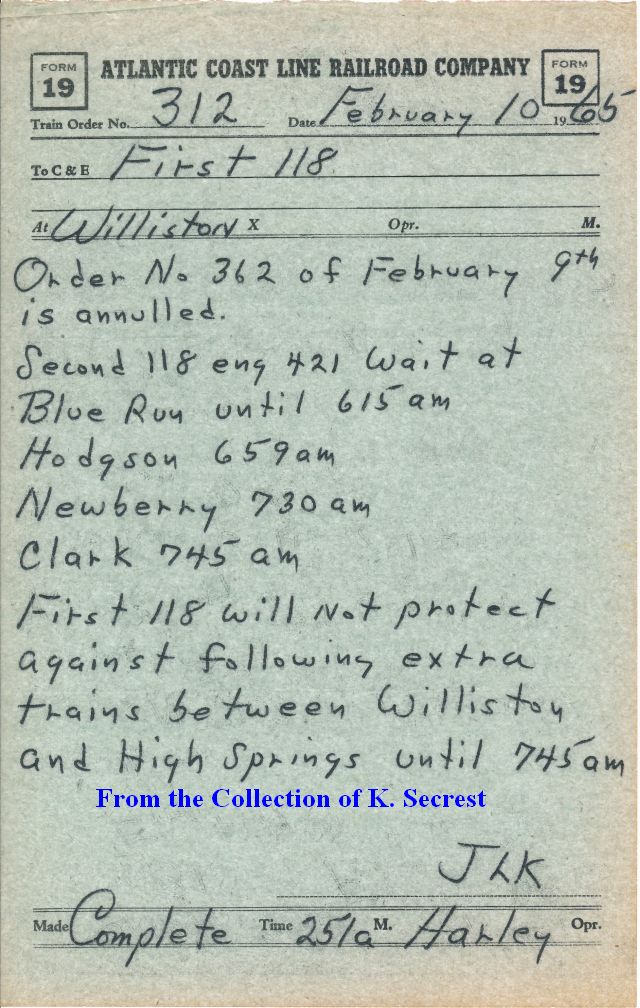 FORM 19 ATLANTIC COAST LINE RAILROAD COMPANY FORM 19
Train Order No. 312 Date February 10 1965
To C & E First 118
At Williston X Opr. M.
Order No 362 of February 9th
is annulled.
Second 118 eng 421 wait at
Blue Run until 615 am
Hodgson 659 am
Newberry 730 am
Clark 745 am
First 118 will not protect
against following extra
trains between Williston
and High Springs until 745 am
From the Collection of K. Secrest
JLK
Made Complete Time 251a M. Harley Opr.